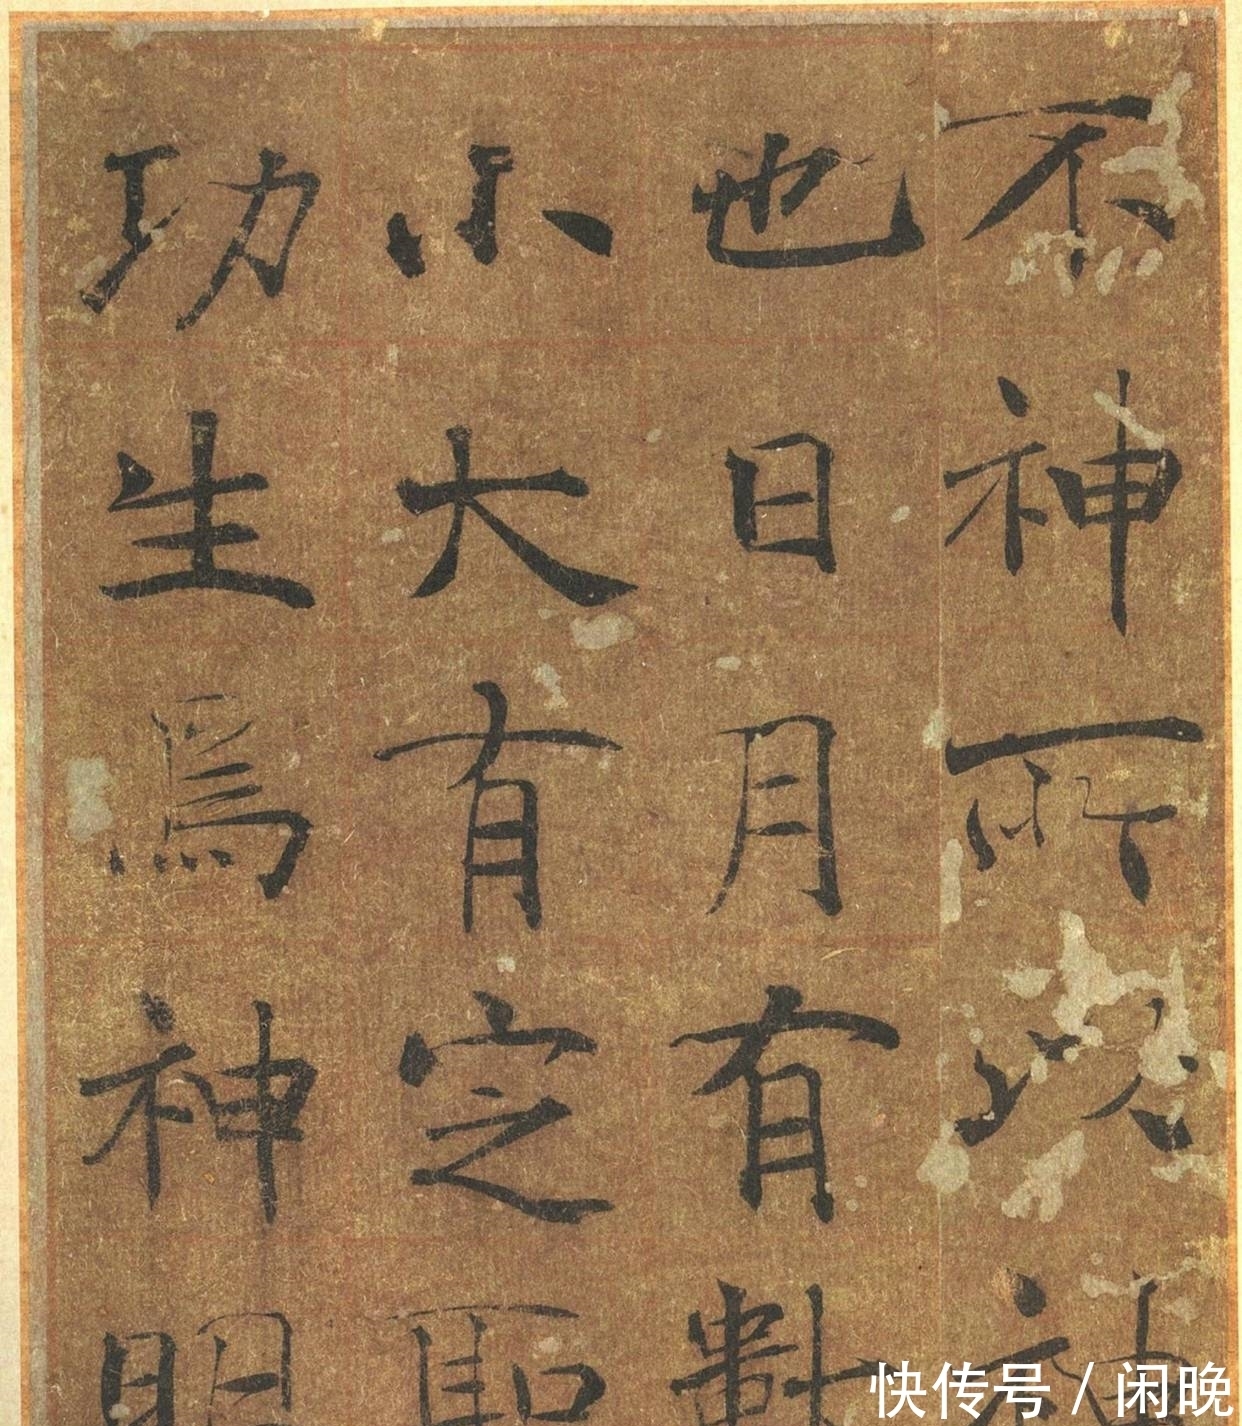 不神所以神
也日月有數
小大有定聖
功生焉神明
快传号 / 闲晚